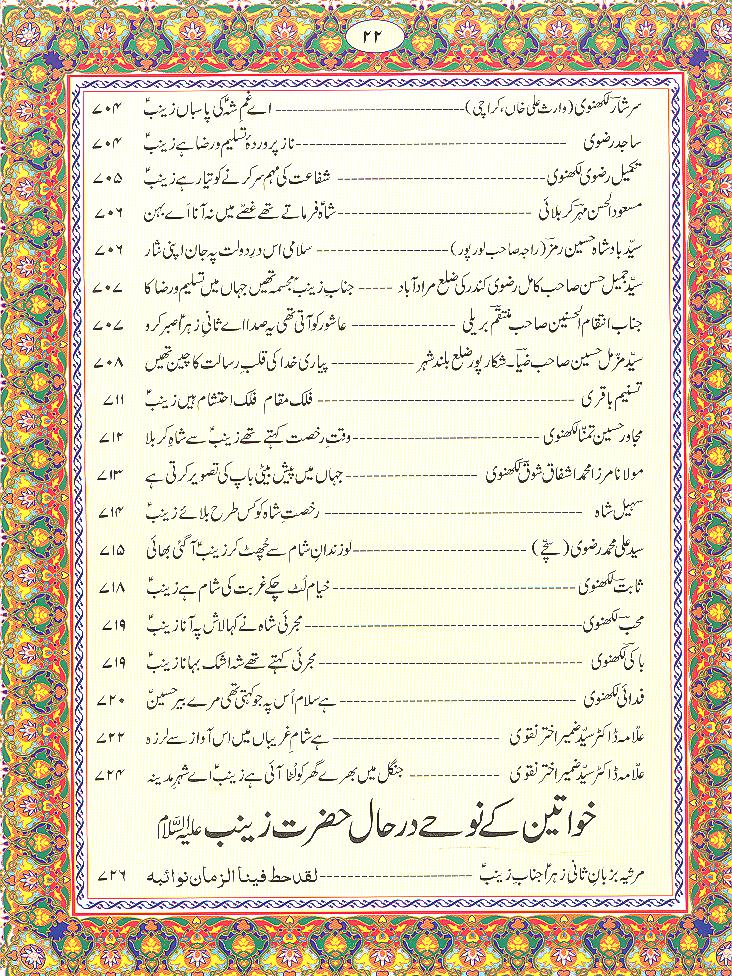 ۲۲
سرشار لکھنوی (وارث علی خاں، کراچی) ---------------------- اے غمِ شہؑ کی پاسباں زینبؑ ۷۰۴
ساجد رضوی ---------------------- ناز پروردۂ تسلیم و رضا ہے زینبؑ ۷۰۴
تکمیل رضوی لکھنوی ---------------------- شفاعت کی مہم سر کرنے کو تیار ہے زینبؑ ۷۰۵
مسعود الحسن مہرؔ کربلائی ---------------------- شاہؑ فرماتے تھے غصے میں نہ آنا اے بہن ۷۰۶
سیّد بادشاہ حسین رمزؔ (راجہ صاحب لورپور) ---------------------- سلامی اس درِ دولت پہ جان اپنی نثار ۷۰۶
سیّد جمیل حسن صاحب کامل رضوی کندرکی ضلع مراد آباد ----- جنابِ زینبؑ مجسمہ تھیں جہاں میں تسلیم و رضا کا ۷۰۷
جناب انتقام الحسنین صاحب منتقمؔ بریلی ---------------------- عاشور کو آتی تھی یہ صدا اے ثانیِ زہراؑ صبر کرو ۷۰۷
سیّد مزمل حسین صاحب ضیاؔ۔ شکارپور ضلع بلند شہر ------------- پیاری خدا کی قلبِ رسالت کا چین تھیں ۷۰۸
تسنیم باقری ---------------------- فلک مقام فلک احتشام ہیں زینبؑ ۷۱۱
مجاور حسین تمناؔ لکھنوی ---------------------- وقتِ رخصت کہتے تھے زینبؑ سے شاہِ کربلا ۷۱۲
مولانا مرزا محمد اشفاق شوقؔ لکھنوی ---------------------- جہاں میں پیش بیٹی باپ کی تصویر کرتی ہے ۷۱۳
سہیل شاہ ---------------------- رخصتِ شاہ کو کس طرح بلائے زینبؑ ۷۱۴
سید علی محمد رضوی (سچّے) ---------------------- لو زندانِ شام سے چُھٹ کر زینبؑ آ گئی بھائی ۷۱۵
ثابتؔ لکھنوی ---------------------- خیام لُٹ چکے غربت کی شام ہے زینبؑ ۷۱۸
محبؔ لکھنوی ---------------------- مجرئی شاہ نے کہا لاش پہ آنا زینبؑ ۷۱۹
باکیؔ لکھنوی ---------------------- مجرئی کہتے تھے شہ اشک بہانا زینبؑ ۷۱۹
فدائی لکھنوی ---------------------- ہے سلام اُس پہ جو کہتی تھی مرے بیر حسینؑ ۷۲۰
علّامہ ڈاکٹر سیّد ضمیر اختر نقوی ---------------------- ہے شامِ غریباں میں اس آواز سے لرزہ ۷۲۲
علّامہ ڈاکٹر سیّد ضمیر اختر نقوی ------------- جنگل میں بھرے گھر کو لُٹا آئی ہے زینبؑ اے شہرِ مدینہ ۷۲۴
خواتین کے نوحے در حال حضرت زینب علیہا السّلام
مرثیہ بزبانِ ثانیِ زہراؑ جنابِ زینبؑ ---------------------- لقد حط فینا الزمان نوائبه ۷۲۶